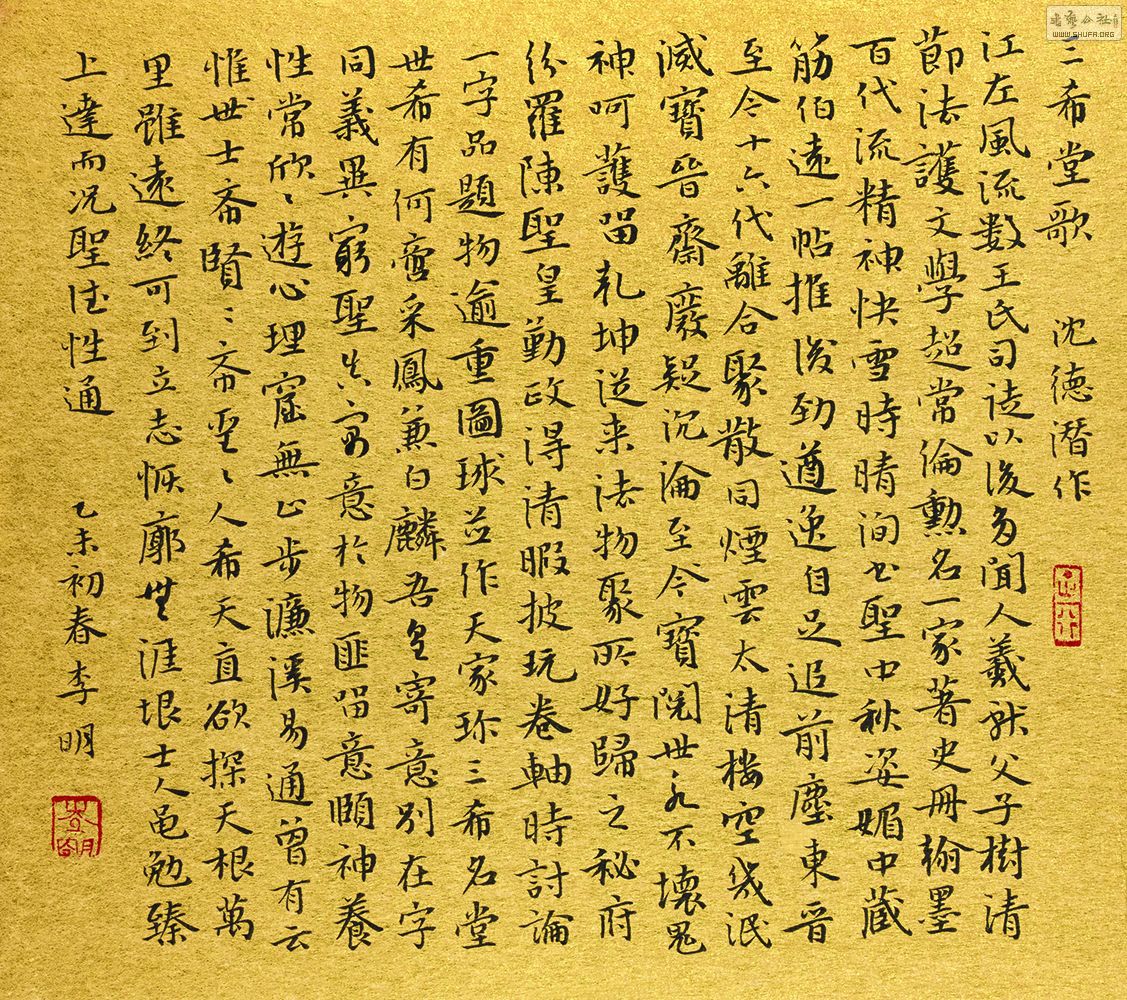 三希堂歌 沈德潜作
江左風流数王氏司徒以後多聞人羲献父子樹清
節法護文學超常倫勲名一家著史冊翰墨
百代流精神快雪時晴洵書聖中秋姿媚中藏
筋伯遠一帖推後勁遒逸自足追前塵東晉
至今十六代離合聚散同煙雲太清楼空幾泯
滅寶晉齋廢疑沉淪至今寶閲世永不壊鬼
神呵護留乹坤従来法物聚所好歸之秘府
紛羅陳聖皇勤政得清暇披玩卷軸時討論
一字品題物逾重圖球並作天家珍三希名堂
世希有何啻采鳳兼白麟吾皇寄意別在字
同義異窮聖真寓意於物匪留意頤神養
性常欣々遊心理窟無止步濂溪易通曽有云
惟世士希賢々希聖々人希天直欲探天根萬
里雖遠終可到立志恢廓無涯垠士人黾勉臻
上達而况聖德性通
乙未初春李明
書藝公社
WWW.SHUFA.ORG